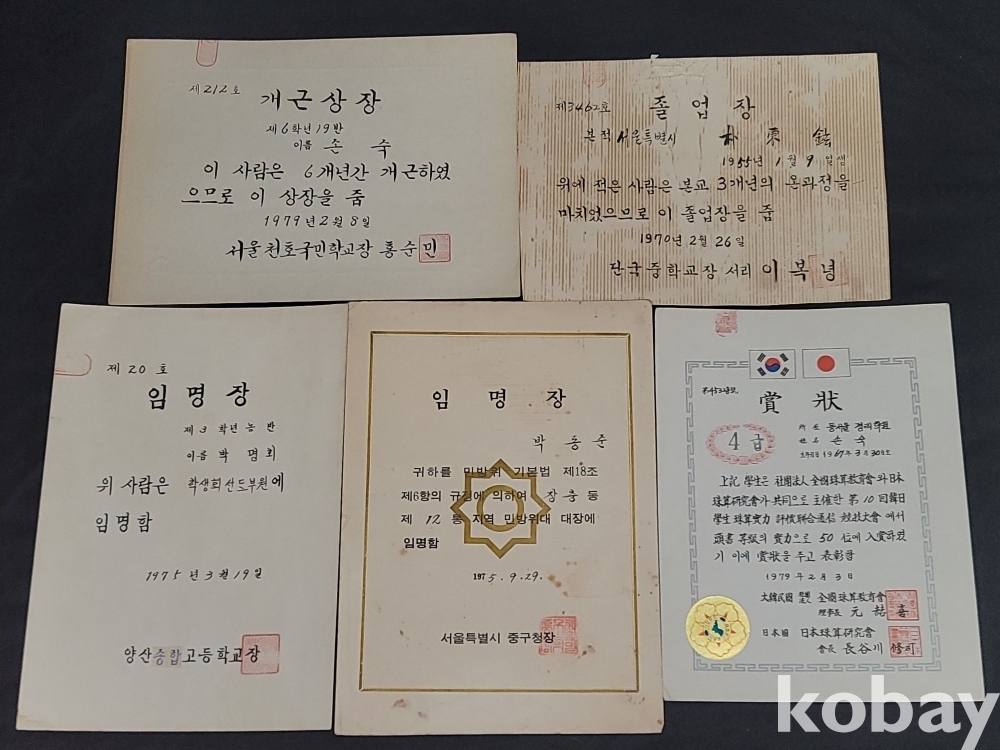 제212호
개근상장
제6학년19반
이름 손 숙
이 사람은 6개년간 개근하였
으므로 이 상장을 줌
1979년2월8일
서울천호국민학교장 홍순민
제3462호
졸 업 장
본적 서울특별시 朴東鉉
1955년 1월 9일생
위에 적은 사람은 본교 3개년의 온과정을
마치었으므로 이 졸업장을 줌
1970년 2월 26일
단국중학교장 서리 이복녕
제 20 호
임명장
제3학년농반
이름 박명희
위 사람은 학생회선도부원에
임명함
1975년3월19일
양산종합고등학교장
임 명 장
박동준
귀하를 민방위 기본법 제18조
제6항의 규정에 의하여 장충동
제 12 통 지역 민방위대 대장에
임명함
1975.9.29.
서울특별시 중구청장
賞狀
4급
姓名 손 숙
1967年3月30日生
上記 學生은 社團法人 全國珠算敎育會와 日本
珠算硏究會가 共同으로 主催한 第10回 韓日
學生 珠算實力 評價聯合通信 競技大會에서
頭書 等級의 實力으로 50位에 入賞하였
기 이에 賞狀을 주고 表彰함
1979年2月3日
大韓民國 社團法人 全國珠算敎育會
理事長 元喆喜
日本國 日本珠算硏究會
會長 長谷川修司
kobay